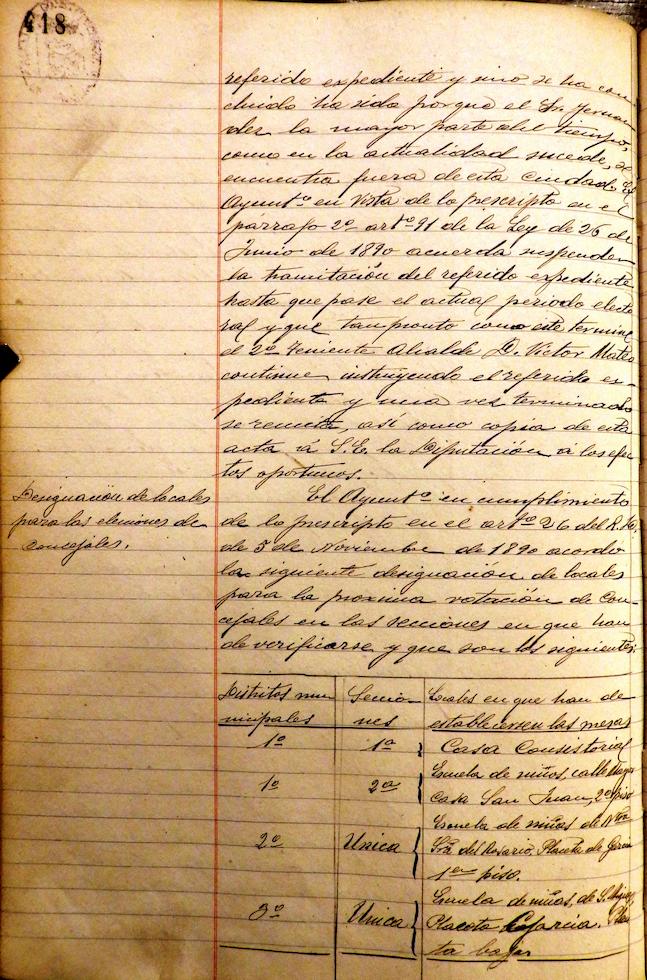 418
referido expediente y sino se ha con
cluido ha sido porque el Sr. Fernan
dez la mayor parte del tiempo,
como en la actualidad sucede, se
encuentra fuera de esta Ciudad. El
Ayuntº en vista de lo prescripto en el
párrafo 2º artº 91 de la Ley de 26 de
Junio de 1890 acuerda suspender
la tramitación del referido expediente
hasta que pase el actual periodo electo
ral y que tan pronto como este termine
el 2º Teniente Alcalde D. Victor Mateo
continue instruyendo el referido ex-
pediente y una vez terminado
se remita, así como copia de esta
acta á S.E. la Diputación á los efec
tos oportunos.
Designación de locales
para las elecciones de
Concejales.
El Ayuntº en cumplimiento
de lo prescripto en el artº 26 del R.D.
de 5 de Noviembre de 1890 acordó
la siguiente designación de locales
para la proxima votación de Con-
cejales en las secciones en que han
de verificarse y que son los siguientes:
Distritos mu
nicipales
Seccio-
nes
Locales en que han de
establecersen las mesas
1º 1ª Casa Consistorial
1º 2ª Escuela de niños, calle Mayor
casa San Juan, 2º piso
2º Unica Escuela de niñas de Ntra
Sra del Rosario, Placeta de Garcia
1er piso.
3º Unica Escuela de niñas, de S. Miguel
Placeta Garcia. Plan
ta baja